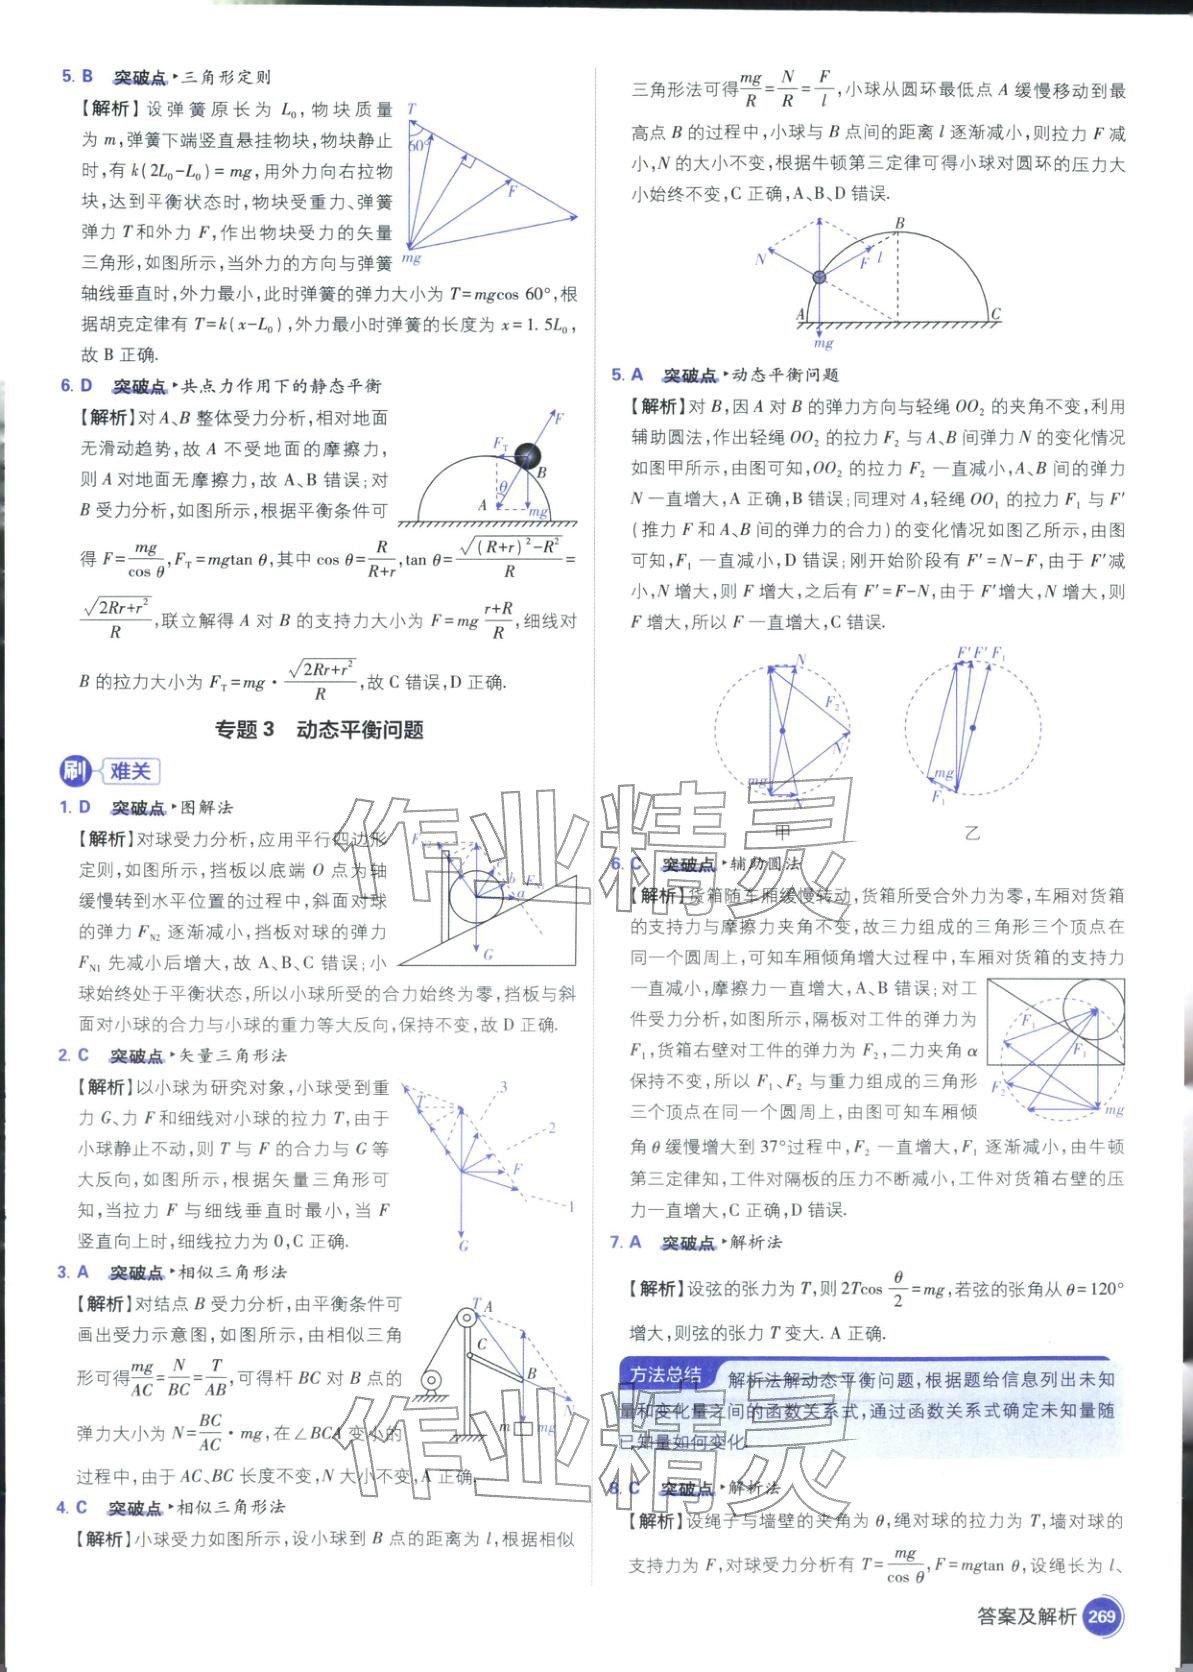 5. B 突破点·三角形定则
【解析】设弹簧原长为 L₀,物块质量
为 m,弹簧下端竖直悬挂物块,物块静止
时,有 k(2L₀-L₀)=mg,用外力向右拉物
块,达到平衡状态时,物块受重力、弹簧
弹力 T 和外力 F,作出物块受力的矢量
三角形,如图所示,当外力的方向与弹簧
轴线垂直时,外力最小,此时弹簧的弹力大小为 T=mgcos 60°,根
据胡克定律有 T=k(x-L₀),外力最小时弹簧的长度为 x=1.5L₀,
故 B 正确.
T
60°
F
mg
6. D 突破点·共点力作用下的静态平衡
【解析】对 A、B 整体受力分析,相对地面
无滑动趋势,故 A 不受地面的摩擦力,
则 A 对地面无摩擦力,故 A、B 错误;对
B 受力分析,如图所示,根据平衡条件可
得 F=mg/cos θ,F_T=mgtan θ,其中 cos θ=R/(R+r),tan θ=√((R+r)²-R²)/R=
√(2Rr+r²)/R,联立解得 A 对 B 的支持力大小为 F=mg (r+R)/R,细线对
B 的拉力大小为 F_T=mg·√(2Rr+r²)/R,故 C 错误,D 正确.
F
F_T
B
θ
A
mg
专题 3 动态平衡问题
刷 难关
1. D 突破点·图解法
【解析】对球受力分析,应用平行四边形
定则,如图所示,挡板以底端 O 点为轴
缓慢转到水平位置的过程中,斜面对球
的弹力 F_N2 逐渐减小,挡板对球的弹力
F_N1 先减小后增大,故 A、B、C 错误;小
球始终处于平衡状态,所以小球所受的合力始终为零,挡板与斜
面对小球的合力与小球的重力等大反向,保持不变,故 D 正确.
F_N2
c
b
F_N1
a
G
2. C 突破点·矢量三角形法
【解析】以小球为研究对象,小球受到重
力 G、力 F 和细线对小球的拉力 T,由于
小球静止不动,则 T 与 F 的合力与 G 等
大反向,如图所示,根据矢量三角形可
知,当拉力 F 与细线垂直时最小,当 F
竖直向上时,细线拉力为 0,C 正确.
T
3
2
F
1
G
3. A 突破点·相似三角形法
【解析】对结点 B 受力分析,由平衡条件可
画出受力示意图,如图所示,由相似三角
形可得mg/AC=N/BC=T/AB,可得杆 BC 对 B 点的
弹力大小为 N=BC/AC·mg,在∠BCA 变小的
过程中,由于 AC、BC 长度不变,N 大小不变,A 正确.
T
A
C
B
N
m
mg
4. C 突破点·相似三角形法
【解析】小球受力如图所示,设小球到 B 点的距离为 l,根据相似
三角形法可得mg/R=N/R=F/l,小球从圆环最低点 A 缓慢移动到最
高点 B 的过程中,小球与 B 点间的距离 l 逐渐减小,则拉力 F 减
小,N 的大小不变,根据牛顿第三定律可得小球对圆环的压力大
小始终不变,C 正确,A、B、D 错误.
B
N
F
l
A
C
mg
5. A 突破点·动态平衡问题
【解析】对 B,因 A 对 B 的弹力方向与轻绳 OO₂ 的夹角不变,利用
辅助圆法,作出轻绳 OO₂ 的拉力 F₂ 与 A、B 间弹力 N 的变化情况
如图甲所示,由图可知,OO₂ 的拉力 F₂ 一直减小,A、B 间的弹力
N 一直增大,A 正确,B 错误;同理对 A,轻绳 OO₁ 的拉力 F₁ 与 F′
(推力 F 和 A、B 间的弹力的合力)的变化情况如图乙所示,由图
可知,F₁ 一直减小,D 错误;刚开始阶段有 F′=N-F,由于 F′减
小,N 增大,则 F 增大,之后有 F′=F-N,由于 F′增大,N 增大,则
F 增大,所以 F 一直增大,C 错误.
N
F₂
N
mg
N
甲
F′ F′ F₁
mg
F₁
乙
6. C 突破点·辅助圆法
【解析】货箱随车厢缓慢转动,货箱所受合外力为零,车厢对货箱
的支持力与摩擦力夹角不变,故三力组成的三角形三个顶点在
同一个圆周上,可知车厢倾角增大过程中,车厢对货箱的支持力
一直减小,摩擦力一直增大,A、B 错误;对工
件受力分析,如图所示,隔板对工件的弹力为
F₁,货箱右壁对工件的弹力为 F₂,二力夹角 α
保持不变,所以 F₁、F₂ 与重力组成的三角形
三个顶点在同一个圆周上,由图可知车厢倾
角 θ 缓慢增大到 37°过程中,F₂ 一直增大,F₁ 逐渐减小,由牛顿
第三定律知,工件对隔板的压力不断减小,工件对货箱右壁的压
力一直增大,C 正确,D 错误.
F₁
F₁
F₂
mg
7. A 突破点·解析法
【解析】设弦的张力为 T,则 2Tcos θ/2=mg,若弦的张角从 θ=120°
增大,则弦的张力 T 变大. A 正确.
方法总结 解析法解动态平衡问题,根据题给信息列出未知
量和变化量之间的函数关系式,通过函数关系式确定未知量随
已知量如何变化.
8. C 突破点·解析法
【解析】设绳子与墙壁的夹角为 θ,绳对球的拉力为 T,墙对球的
支持力为 F,对球受力分析有 T=mg/cos θ,F=mgtan θ,设绳长为 l、
答案及解析 269
作业精灵
作业精灵